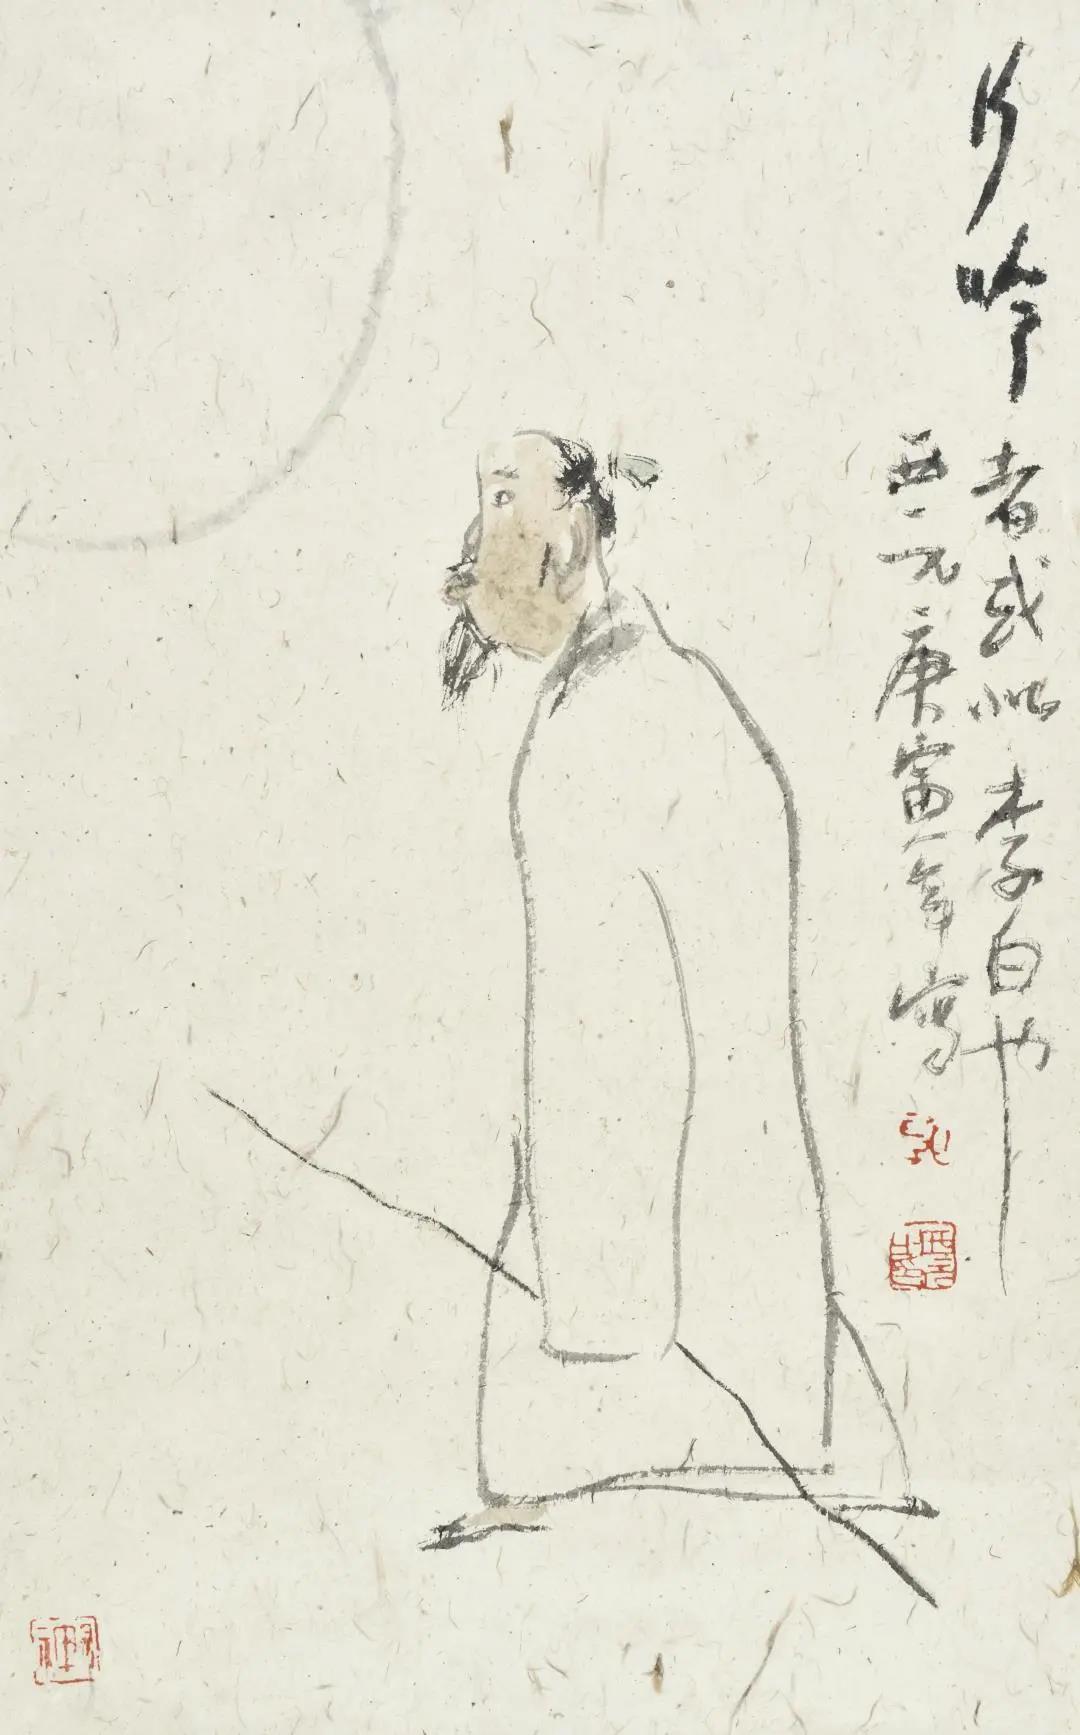 行吟者或似李白也
西元庚寅年寫